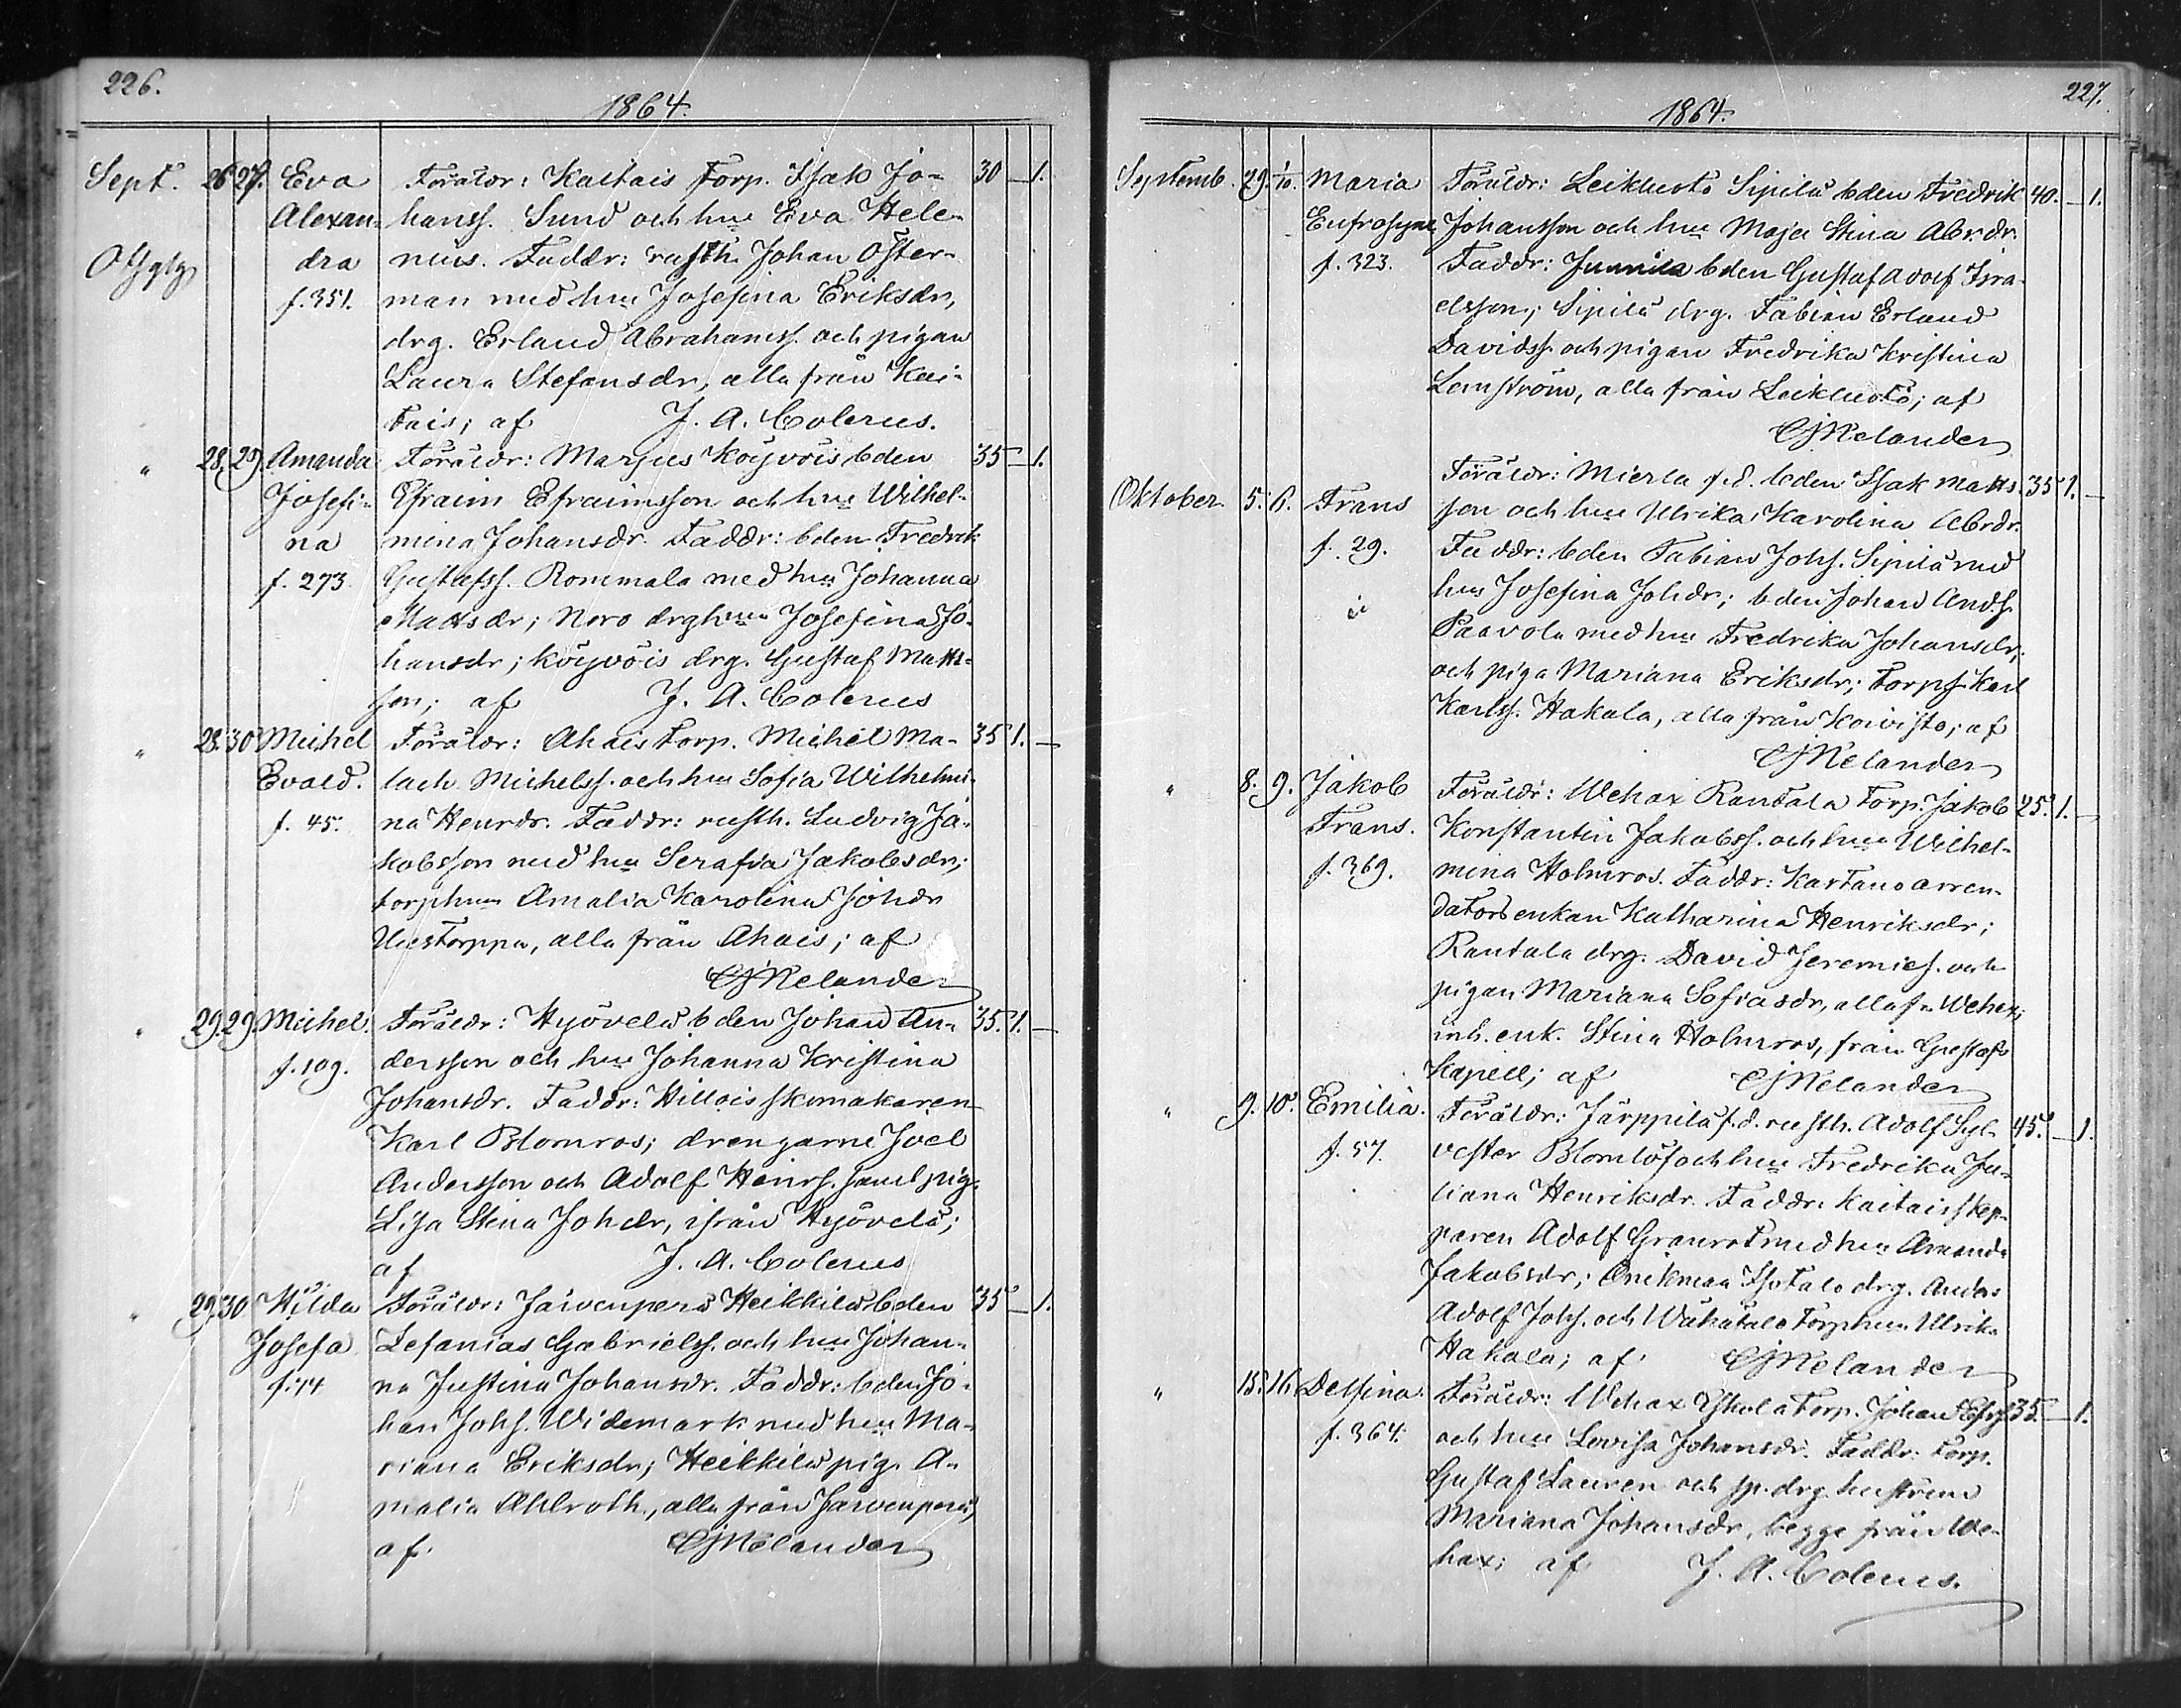 226.
1864.
Sept. 26 27. Eva Föräldr: Kaitais Torp. Isak Jo- 30 — 1.
Alexan- hanss. Sund och hu Eva Hele-
dra nius. Faddr: rusth. Johan Öster-
f. 351. man med hu Josefina Eriksdr,
drg. Erland Abrahamss. och pigan
Laura Stefansdr, alla från Kai-
tais; af J. A. Colerus.
" 28. 29. Amanda Föräldr: Marjus Köyvöis bden 35 — 1.
Josefi- Efraim Efraimsson och hu Wilhel-
na mina Johansdr. Faddr: bden Fredrik
f. 273. Gustafss. Rommala med hu Johanna
Mattsdr; Nero drghu Josefina Jo-
hansdr; Köyvöis drg. Gustaf Matts-
son; af J. A. Colerus
" 28. 30 Michel Föräldr: Ahais Torp. Michel Ma- 35 1. —
Evald. lach Michelss. och hu Sofia Wilhelmi-
f. 45. na Henrdr. Faddr: rusth. Ludvig Ja-
kobsson med hu Serafia Jakobsdr;
torphu Amalia Karolina Johdr
Uustorppa, alla från Ahais; af
CJMelander
" 29. 29. Michel. Föräldr: Hyövelä bden Johan An- 35. 1. —
f. 109. dersson och hu Johanna Kristina
Johansdr. Faddr: Hillois skomakaren
Karl Blomros; drengarne Joel
Andersson och Adolf Henrs. samt pig.
Lisa Stina Johdr, ifrån Hyövelä;
af J. A. Colerus
" 29. 30. Hilda Föräldr: Järvenperä Heikkilä bden 35 — 1.
Josefa Zefanias Gabrielss. och hu Johan-
f. 14 na Justina Johansdr. Faddr: bden Jo-
han Johs. Widemark med hu Ma-
riana Eriksdr; Heikkilä pig. A-
malia Ahlroth, alla från Järvenperä;
af. CJMelander
227.
1864.
Septemb. 29. 1/10. Maria Föräldr: Leikluoto Sipilä bden Fredrik 40. — 1.
Eufrosyne Johansson och hu Maja Stina Abr.dr.
f. 323. Faddr: Junnila bden Gustaf Adolf Isra-
elsson; Sipilä drg. Fabian Erland
Davidss. och pigan Fredrika Kristina
Lemström, alla från Leikluoto; af
CJMelander
Föräldr: Mierla f.d. bden Isak Matts- 35 1. —
Oktober. 5. 6. Frans son och hu Ulrika Karolina Abrdr.
f. 29. Faddr: bden Fabian Johs. Sipilä med
hu Josefina Johdr; bden Johan And.s.
Paavola med hu Fredrika Johansdr;
och piga Mariana Eriksdr; Torps. Karl
Karlss. Hakala, alla från Koivisto; af
CJMelander
" 8. 9. Jakob Föräldr: Wehax Rantala Torp. Jakob 25. 1. —
Frans. Konstantin Jakobss. och hu Wilhel-
f. 369. mina Holmros. Faddr: Kartano arren-
datorsenkan Katharina Henriksdr;
Rantala drg. David Jeremies. och
pigan Mariana Sofiasdr, alla fr. Wehax;
inh. enk. Stina Holmros, från Gustafs
Kapell; af CJMelander
" 9. 10. Emilia. Föräldr: Järppilä f.d. rusth. Adolf Syl- 45. — 1.
f. 57. vester Blomlöf och hu Fredrika Ju-
liana Henriksdr. Faddr: Kaitais skep-
paren Adolf Granrot med hu Amanda
Jakobsdr; Isotalo drg. Anders
Adolf Johs. och Wähätalo Torphu Ulrika
Hakala; af CJMelander
" 15. 16. Delfina. Föräldr: Wehax Torp. Johan 35. — 1.
f. 364. och hu Lovisa Johansdr. Faddr: Torp.
Gustaf Lauren och sp.drg. hustrun
Mariana Johansdr, begge från We-
hax; af J. A. Colerus.